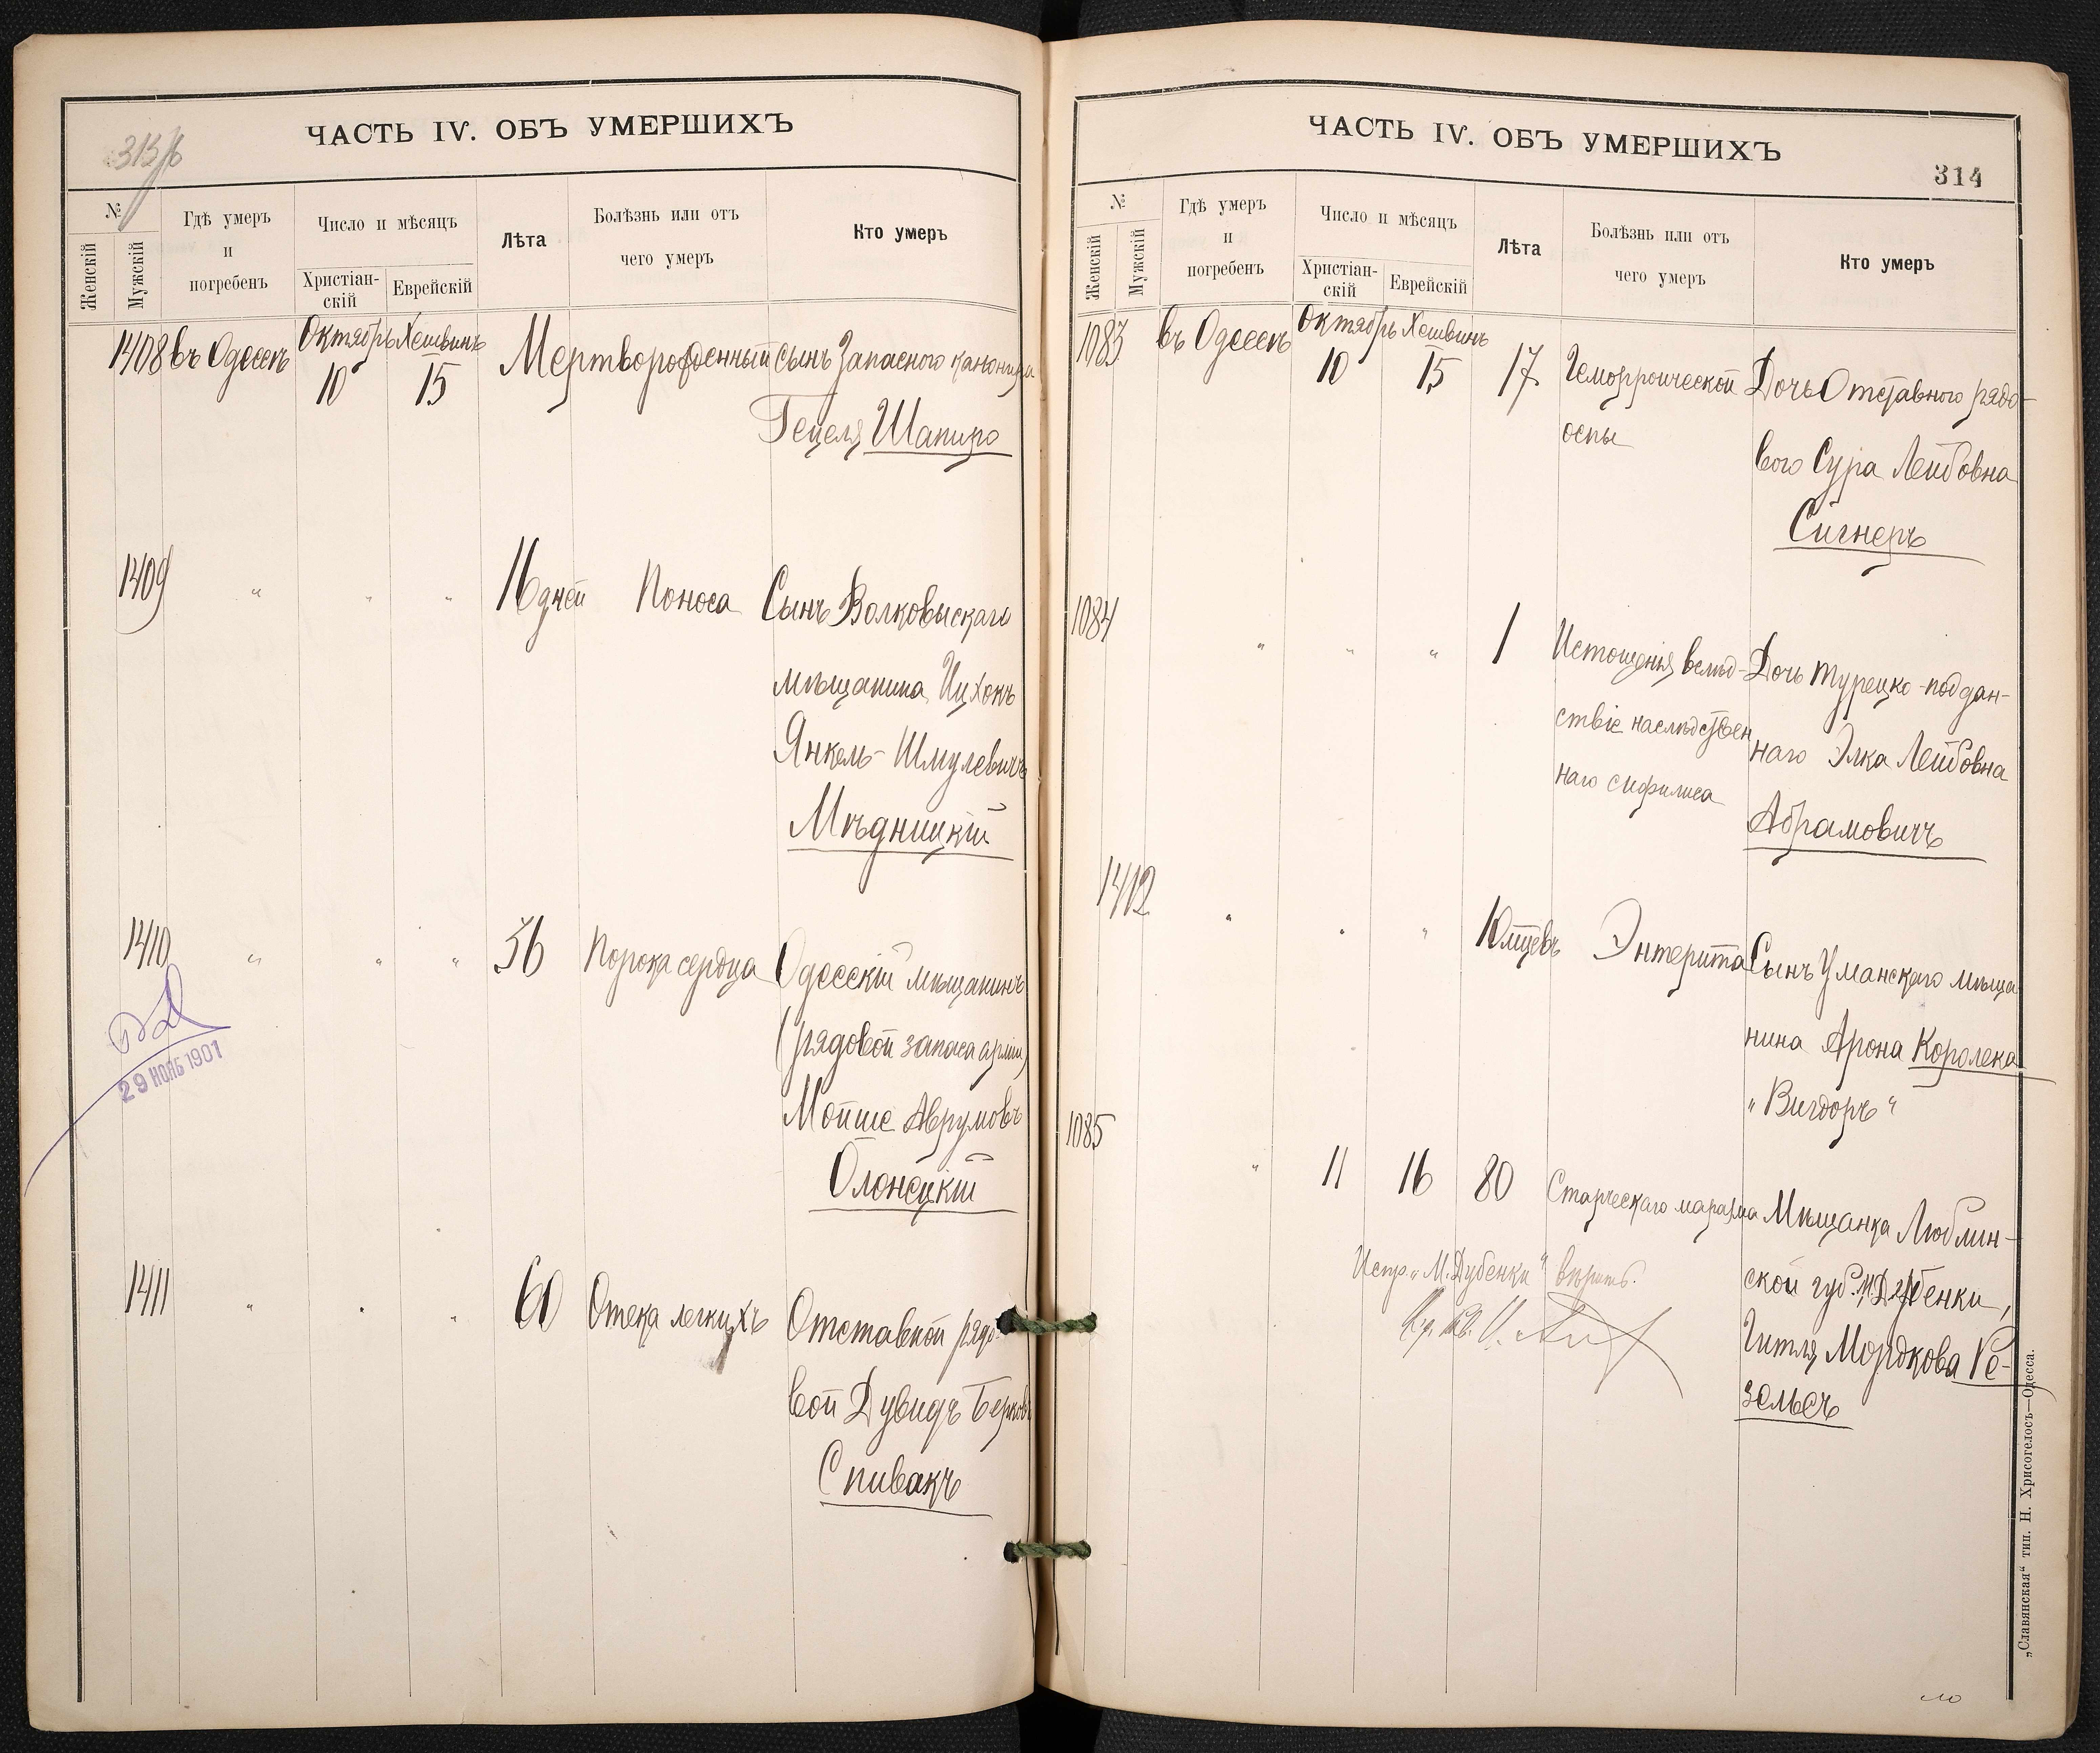 ЧАСТЬ IV. ОБЪ УМЕРШИХЪ
№
Женскій
Мужскій
Гдѣ умеръ
и
погребенъ
Число и мѣсяцъ
Христіан-
скій
Еврейскій
Лѣта
Болѣзнь или отъ
чего умеръ
Кто умеръ
1408 въ Одессѣ Октябрь Хешвинъ
10 15 Мертворожденный сынъ Запаснаго канонира
Гецеля Шапиро
1409 " " " 16 дней Поноса Сынъ Волковыскаго
мѣщанина Ицхокъ
Янкель-Шмулевичъ
Мѣдницкій
1410 " " " 36 Порока сердца Одесскій мѣщанинъ
(рядовой запаса арміи)
Мойше Аврумовъ
Олонецкій
29 НОЯБ 1901
1411 " " " 60 Отека легкихъ Отставной рядо-
вой Дувидъ Берковъ
Спивакъ
ЧАСТЬ IV. ОБЪ УМЕРШИХЪ
314
№
Женскій
Мужскій
Гдѣ умеръ
и
погребенъ
Число и мѣсяцъ
Христіан-
скій
Еврейскій
Лѣта
Болѣзнь или отъ
чего умеръ
Кто умеръ
1083 въ Одессѣ Октябрь Хешвинъ
10 15 17 Геморроической Дочь Отставного рядо-
оспы вого Сура Лейбовна
Сигнеръ
1084 " " " 1 Истощенія вслѣд- Дочь турецко-поддан-
ствіе наслѣдствен наго Элка Лейбовна
наго сифилиса Абрамовичъ
1412 " " " 10 мцевъ Энтерита Сынъ Уманскаго мѣща
нина Арона Королека
"Вигдоръ"
1085 " 11 16 80 Старческаго маразма Мѣщанка Люблин-
ской губ. М. Дубенки,
Гитля Мордкова Ге-
зельсъ
Испр. "М. Дубенки" вѣрить.
„Славянская“ тип. Н. Хрисогелосъ—Одесса.